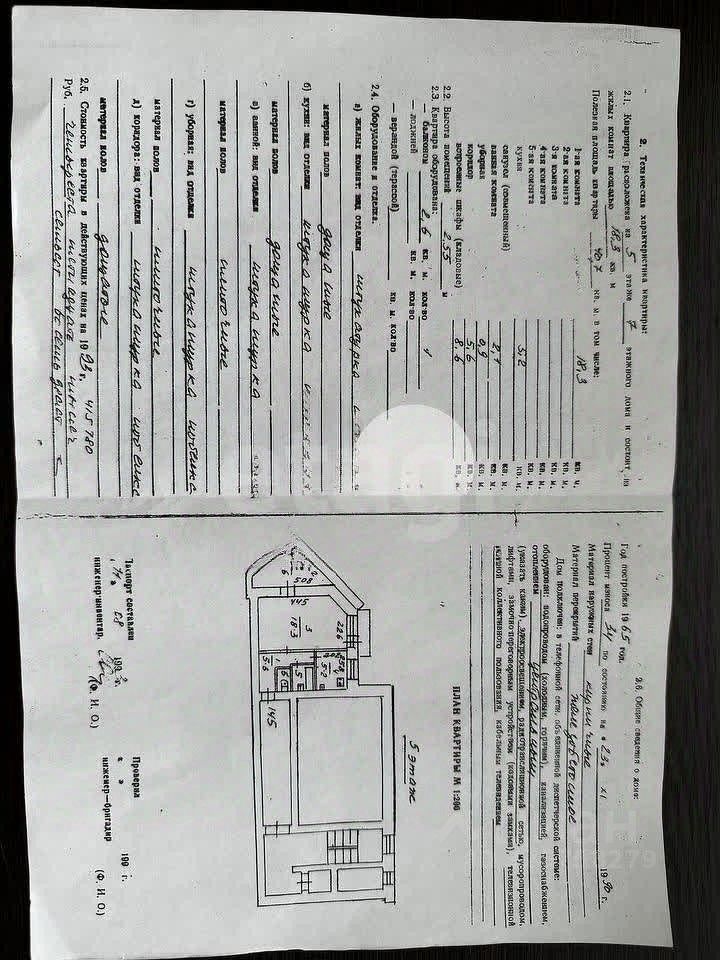 2. Техническая характеристика квартиры:
2.1. Квартира расположена на 5 этаже 7 этажного дома и состоит из
жилых комнат площадью 18,3 кв м
Полезная площадь квартиры 40,7 кв. м. в том числе:
1-ая комната 18,3 кв. м.
2-ая комната кв. м.
3-я комната кв. м.
4-ая комната кв. м.
5-ая комната кв. м.
кухня 5,2 кв. м.
санузел (совмещенный) кв. м.
ванная комната 2,1 кв. м.
уборная 0,9 кв. м.
коридор 5,6 кв. м.
встроенные шкафы (кладовые) 8,6 кв. м.
2.2. Высота помещений 2,55 м
2.3. Квартира оборудована:
— балконом 2,6 кв. м. кол-во 1
— лоджией кв. м. кол-во
— верандой (террасой) кв. м. кол-во
2.4. Оборудование и отделка.
а) жилых комнат: вид отделки штукатурка
материал полов дощатые
б) кухни: вид отделки штукатурка
материал полов дощатые
в) ванной: вид отделки штукатурка
материал полов плиточные
г) уборная: вид отделки штукатурка побелка
материал полов плиточные
д) коридора: вид отделки штукатурка побелка
материал полов дощатые
2.5. Стоимость квартиры в действующих ценах на 1993 г. 415780
Руб. четыреста пятнадцать тысяч
семьсот восемьдесят
2.6. Общие сведения о доме:
Год постройки 1965 год.
Процент износа 34 по состоянию на «23» XI 1990 г.
Материал наружных стен кирпичные
Материал перекрытий железобетонное
Дом подключен: к телефонной сети, объединенной диспетчерской системе:
оборудован: водопроводом (холодным, горячим), канализацией, газоснабжением,
отоплением центральным
(указать каким), электроосвещением, радиотрансляционной сетью, мусоропроводом,
лифтами, замочно-переговорным устройством (кодовыми замками), телевизионной
антенной коллективного пользования, кабельным телевидением
ПЛАН КВАРТИРЫ М 1:200
5 этаж
6
508
445
3
18.3
226
5.2
5.6
1
145
Паспорт составлен
«14» 08 1993 г.
инженер-инвентар.
(Ф. И. О.)
Проверил
« » 199 г.
инженер-бригадир
(Ф. И. О.)